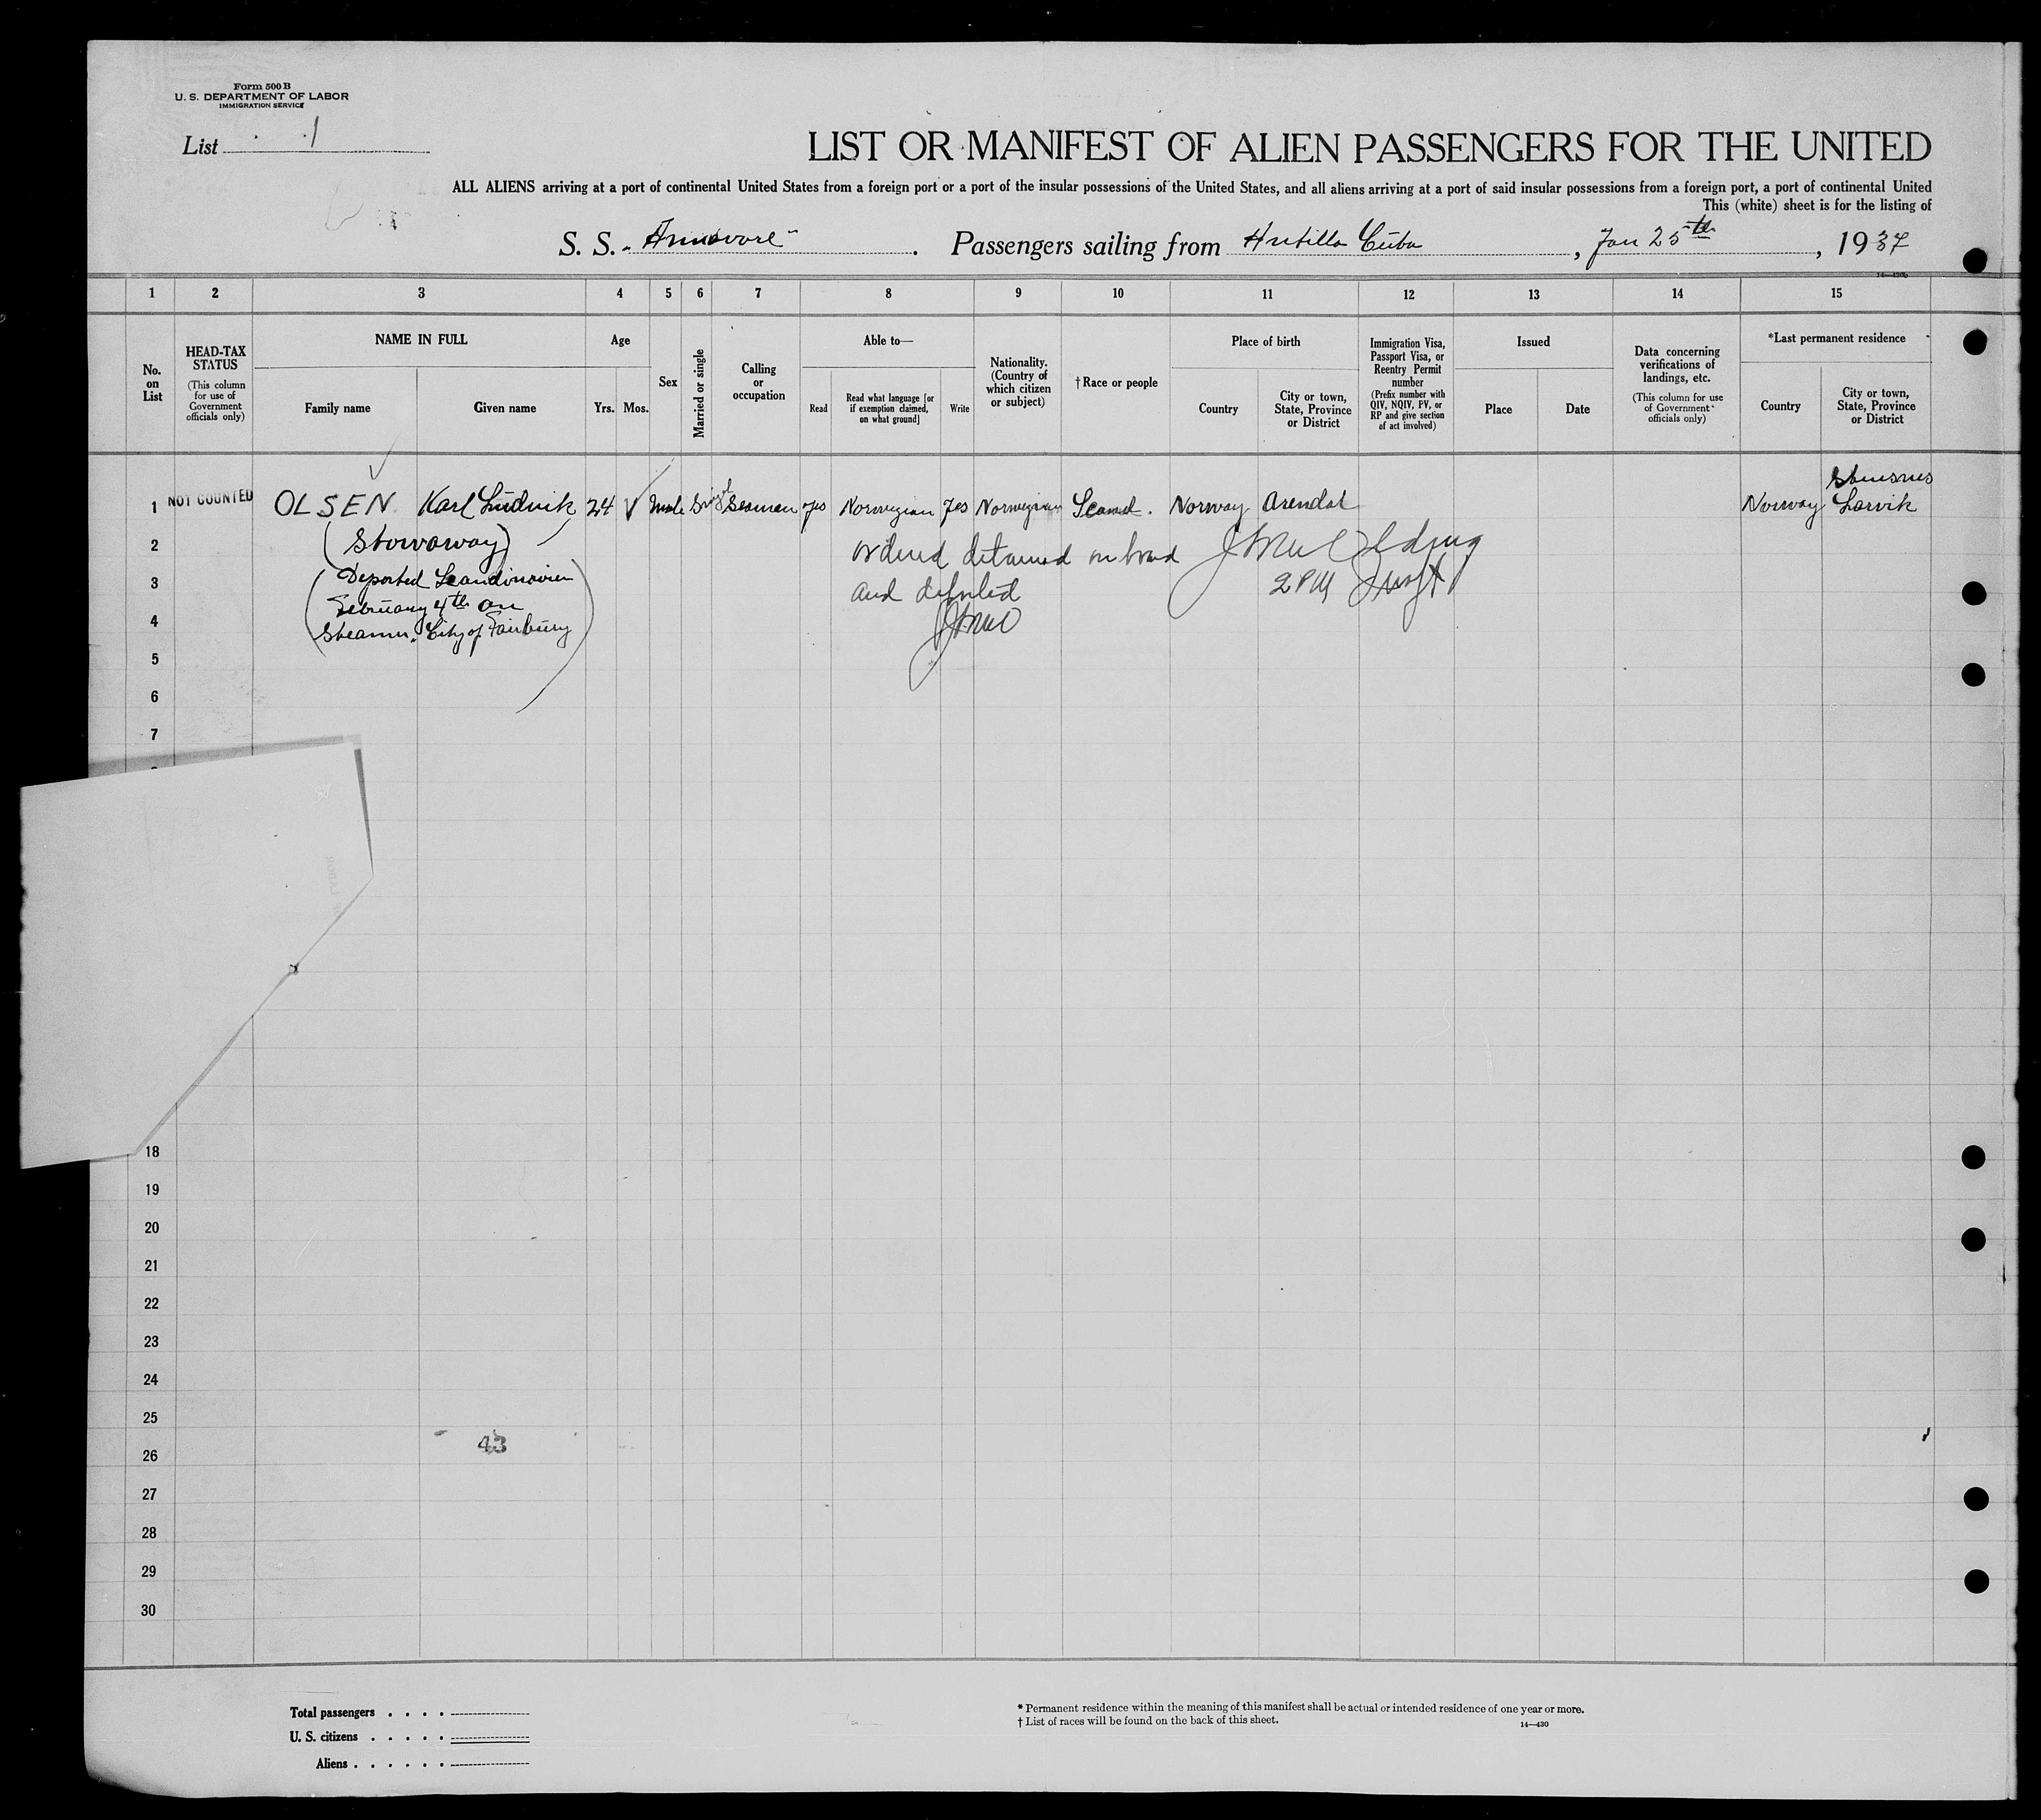 Form 500 B
U. S. DEPARTMENT OF LABOR
IMMIGRATION SERVICE
List 1
LIST OR MANIFEST OF ALIEN PASSENGERS FOR THE UNITED
ALL ALIENS arriving at a port of continental United States from a foreign port or a port of the insular possessions of the United States, and all aliens arriving at a port of said insular possessions from a foreign port, a port of continental United
This (white) sheet is for the listing of
S. S. Passengers sailing from Antilla Cuba, Jan 25th, 1937
14—430b
1 2 3 4 5 6 7 8 9 10 11 12 13 14 15
No. on List
HEAD-TAX STATUS (This column for use of Government officials only)
NAME IN FULL
Family name
Given name
Age
Yrs. Mos.
Sex
Married or single
Calling or occupation
Able to—
Read
Read what language [or if exemption claimed, on what ground]
Write
Nationality. (Country of which citizen or subject)
†Race or people
Place of birth
Country
City or town, State, Province or District
Immigration Visa, Passport Visa, or Reentry Permit number (Prefix number with QIV, NQIV, PV, or RP and give section of act involved)
Issued
Place
Date
Data concerning verifications of landings, etc. (This column for use of Government officials only)
*Last permanent residence
Country
City or town, State, Province or District
1 NOT COUNTED OLSEN Karl Ludvik 24 Male Singl Seaman yes Norwegian Yes Norwegian Scand. Norway Arendal Norway Larvik
2 (Stowaway) ordered detained on board
3 (Deported Scandinavien and deported 2 PM
February 4th on
4 Steamer "City of Fairbury)
5
6
7
18
19
20
21
22
23
24
25
43
26
27
28
29
30
Total passengers . . . .
U. S. citizens . . . . .
Aliens . . . . . .
* Permanent residence within the meaning of this manifest shall be actual or intended residence of one year or more.
† List of races will be found on the back of this sheet.
14—430